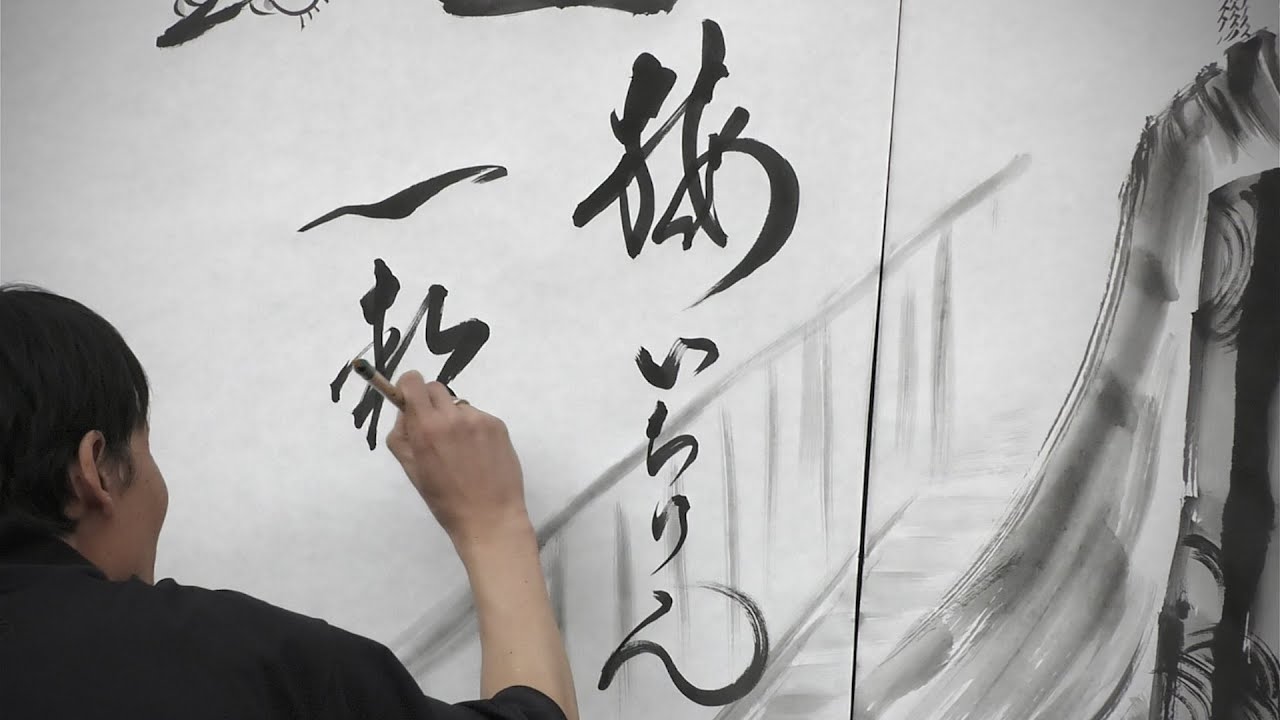 梅いちりん
一